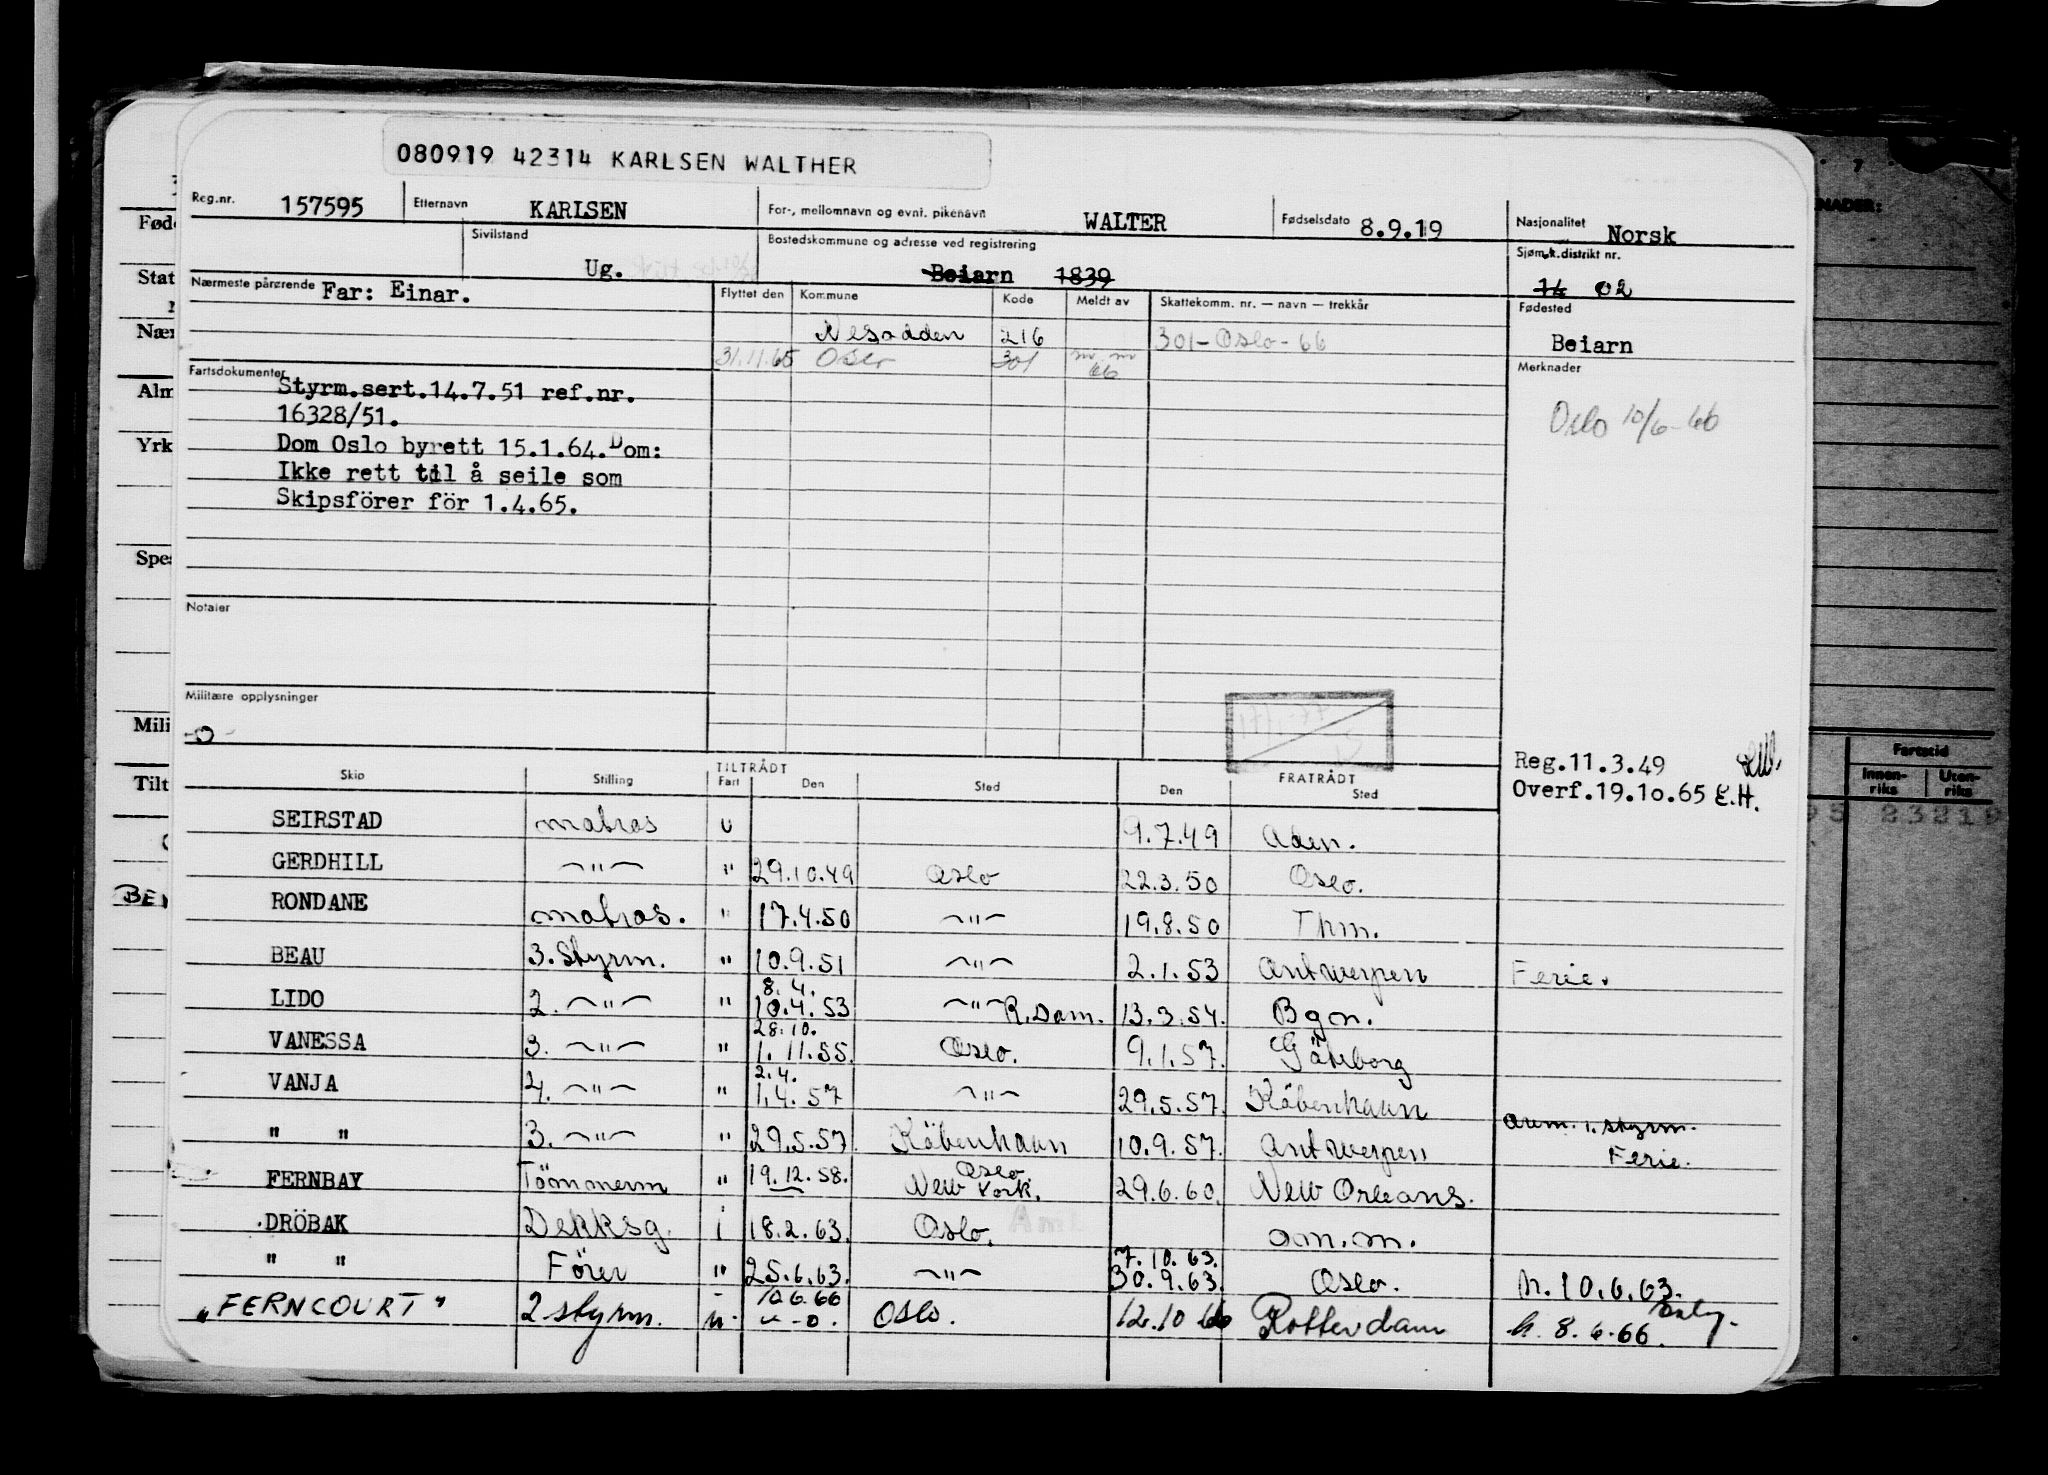 080919 42314 KARLSEN WALTHER
Reg.nr. 157595 Etternavn KARLSEN For-, mellomnavn og evnt. pikenavn WALTER Fødselsdato 8.9.19 Nasjonalitet Norsk
Sivilstand Ug. Bostedskommune og adresse ved registrering Beiarn 1839 Sjøm.k.distrikt nr. 14 02
Nærmeste pårørende Far: Einar. Flyttet den Kommune Kode Meldt av Skattekomm. nr. — navn — trekkår Fødested
Nesodden 216 301-Oslo-66 Beiarn
31.11.65 Oslo 301 66
Fartsdokumenter Merknader
Styrm.sert.14.7.51 ref.nr.
16328/51. Oslo 10/6-66
Dom Oslo byrett 15.1.64.Dom:
Ikke rett til å seile som
Skipsförer för 1.4.65.
Notater
Militære opplysninger
-0-
Reg.11.3.49
Overf.19.10.65 E.H.
TILTRÅDT FRATRÅDT
Skip Stilling Fart Den Sted Den Sted
SEIRSTAD matros u 9.7.49 Aden.
GERDHILL —"— " 29.10.49 Oslo 22.3.50 Oslo.
RONDANE matros. " 17.4.50 —"— 19.8.50 Thm.
BEAU 3. Styrm. " 10.9.51 —"— 2.1.53 Antwerpen Ferie.
8.4.
LIDO 2. —"— " 10.4.53 —"— R.Dam. 13.3.54. Bgn.
28.10.
VANESSA 3. —"— " 1.11.55. Oslo. 9.1.57. Göteborg
2.4.
VANJA 4. —"— " 1.4.57 —"— 29.5.57. Köbenhavn
" " 3. —"— " 29.5.57. Köbenhavn 10.9.57. Antwerpen avm. 1. styrm.
Ferie.
Oslo
FERNBAY Tömmerm " 19.12.58. New York. 29.6.60. New Orleans.
DRÖBAK Dekksg. i 18.2.63. Oslo. a m.m.
7.10.63.
" " Förer " 25.6.63. —"— 30.9.63. Oslo. h. 10.6.63.
10.6.66
"FERNCOURT" 2 styrm. u. " -0. Oslo. 12.10 66 Rotterdam h. 8.6.66.
Fød
Stat
Nær
Alm
Yrk
Spes
Mili
Tilt
BEI
NADER:
Fartstid
Innen-riks Uten-riks
95 23219